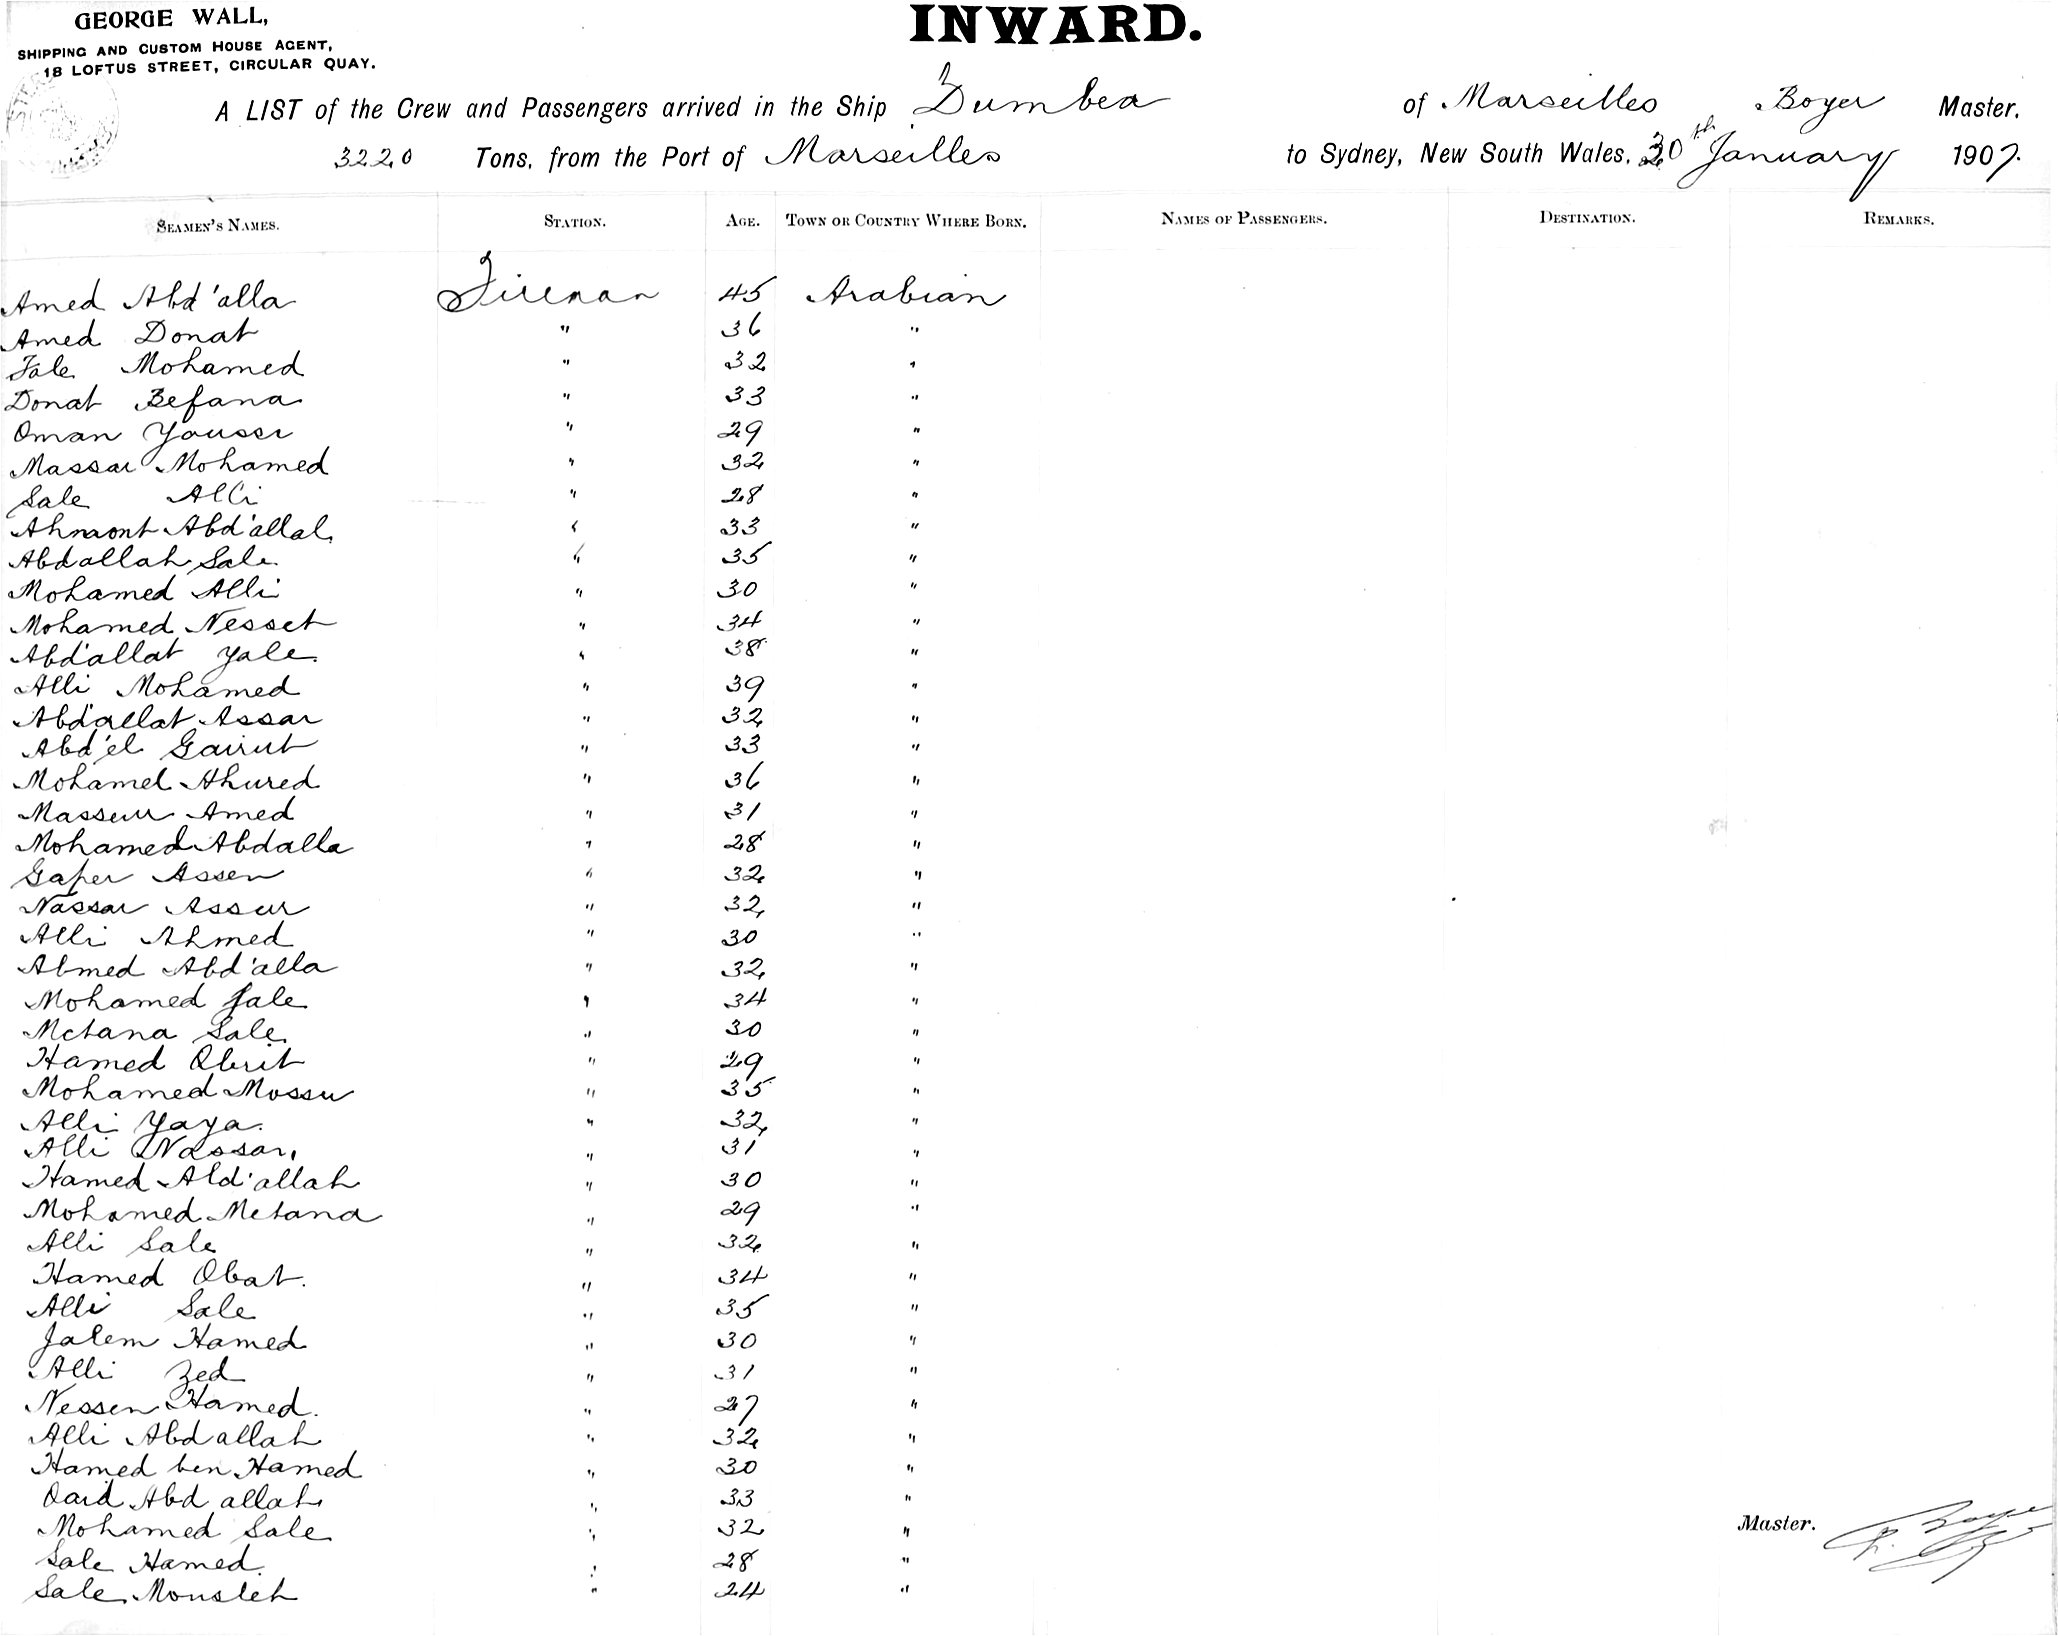 GEORGE WALL,
SHIPPING AND CUSTOM HOUSE AGENT,
18 LOFTUS STREET, CIRCULAR QUAY.
INWARD.
A LIST of the Crew and Passengers arrived in the Ship Dumbea of Marseilles Boyer Master.
3220 Tons, from the Port of Marseilles to Sydney, New South Wales, 30th January 1907.
SEAMEN'S NAMES. STATION. AGE. TOWN OR COUNTRY WHERE BORN. NAMES OF PASSENGERS. DESTINATION. REMARKS.
Amed Abd'alla Fireman 45 Arabian
Amed Donat " 36 "
Fale Mohamed " 32 "
Donat Befana " 33 "
Oman Yousser " 29 "
Massar Mohamed " 32 "
Sale Alli " 28 "
Ahmont Abd'allal " 33 "
Abdallah Sale " 35 "
Mohamed Alli " 30 "
Mohamed Nesset " 34 "
Abd'allat Yale " 38 "
Alli Mohamed " 39 "
Abd'allat Assar " 32 "
Abd'el " 33 "
Mohamel Ahured " 36 "
Masseur Amed " 31 "
Mohamed Abdalla " 28 "
Gaper Assen " 32 "
Nassar Assur " 32 "
Alli Ahmed " 30 "
Abmed Abd'alla " 32 "
Mohamed Jale " 34 "
Metana Sale " 30 "
Hamed " 29 "
Mohamed Mossu " 35 "
Alli Yaya. " 32 "
Alli Nassar, " 31 "
Hamed Abd'allah " 30 "
Mohamed Metana " 29 "
Alli Sale " 32 "
Hamed Obat. " 34 "
Alli Sale " 35 "
Jalem Hamed " 30 "
Alli Zed " 31 "
Nessen Hamed. " 27 "
Alli Abdallah " 32 "
Hamed ben Hamed " 30 "
Oaid Abd allah " 33 "
Mohamed Sale " 32 "
Master.
Sale Hamed. " 28 "
Sale Mousleh " 24 "